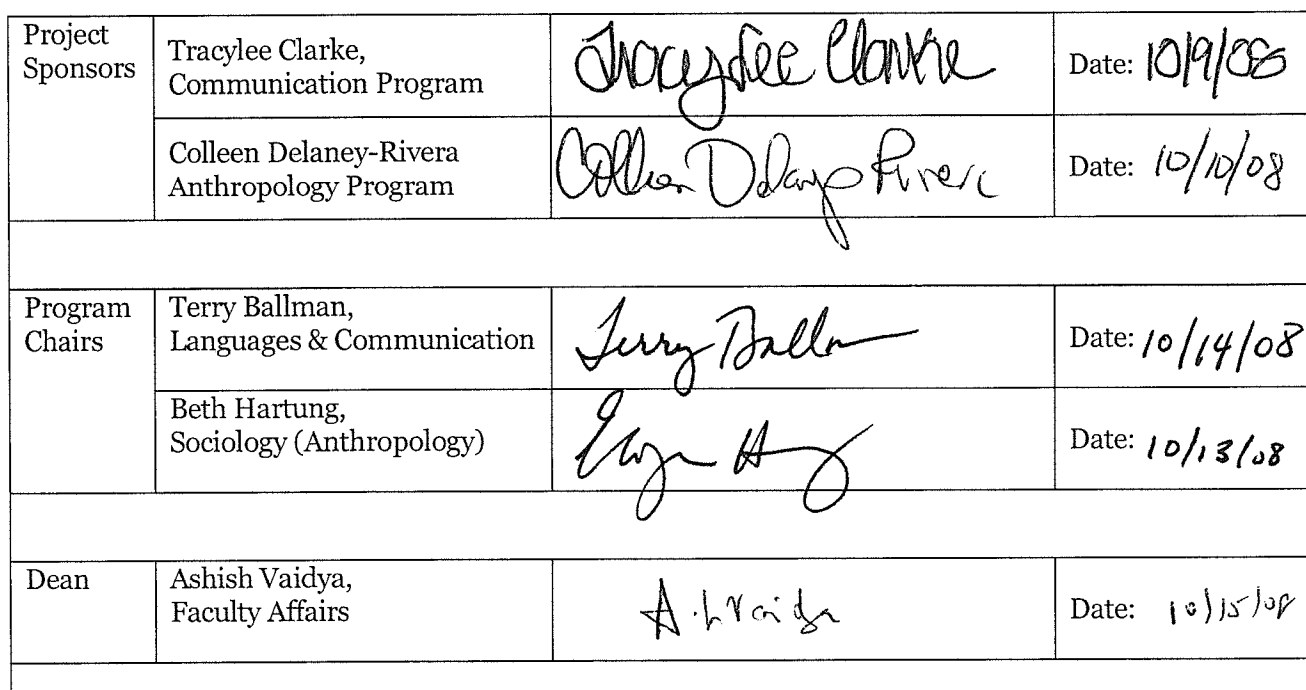 Project Sponsors
Tracylee Clarke,
Communication Program
Tracylee Clarke
Date: 10/9/08
Colleen Delaney-Rivera
Anthropology Program
Colleen Delaney Rivera
Date: 10/10/08
Program Chairs
Terry Ballman,
Languages & Communication
Terry Ballman
Date: 10/14/08
Beth Hartung,
Sociology (Anthropology)
Date: 10/13/08
Dean
Ashish Vaidya,
Faculty Affairs
Date: 10/15/08